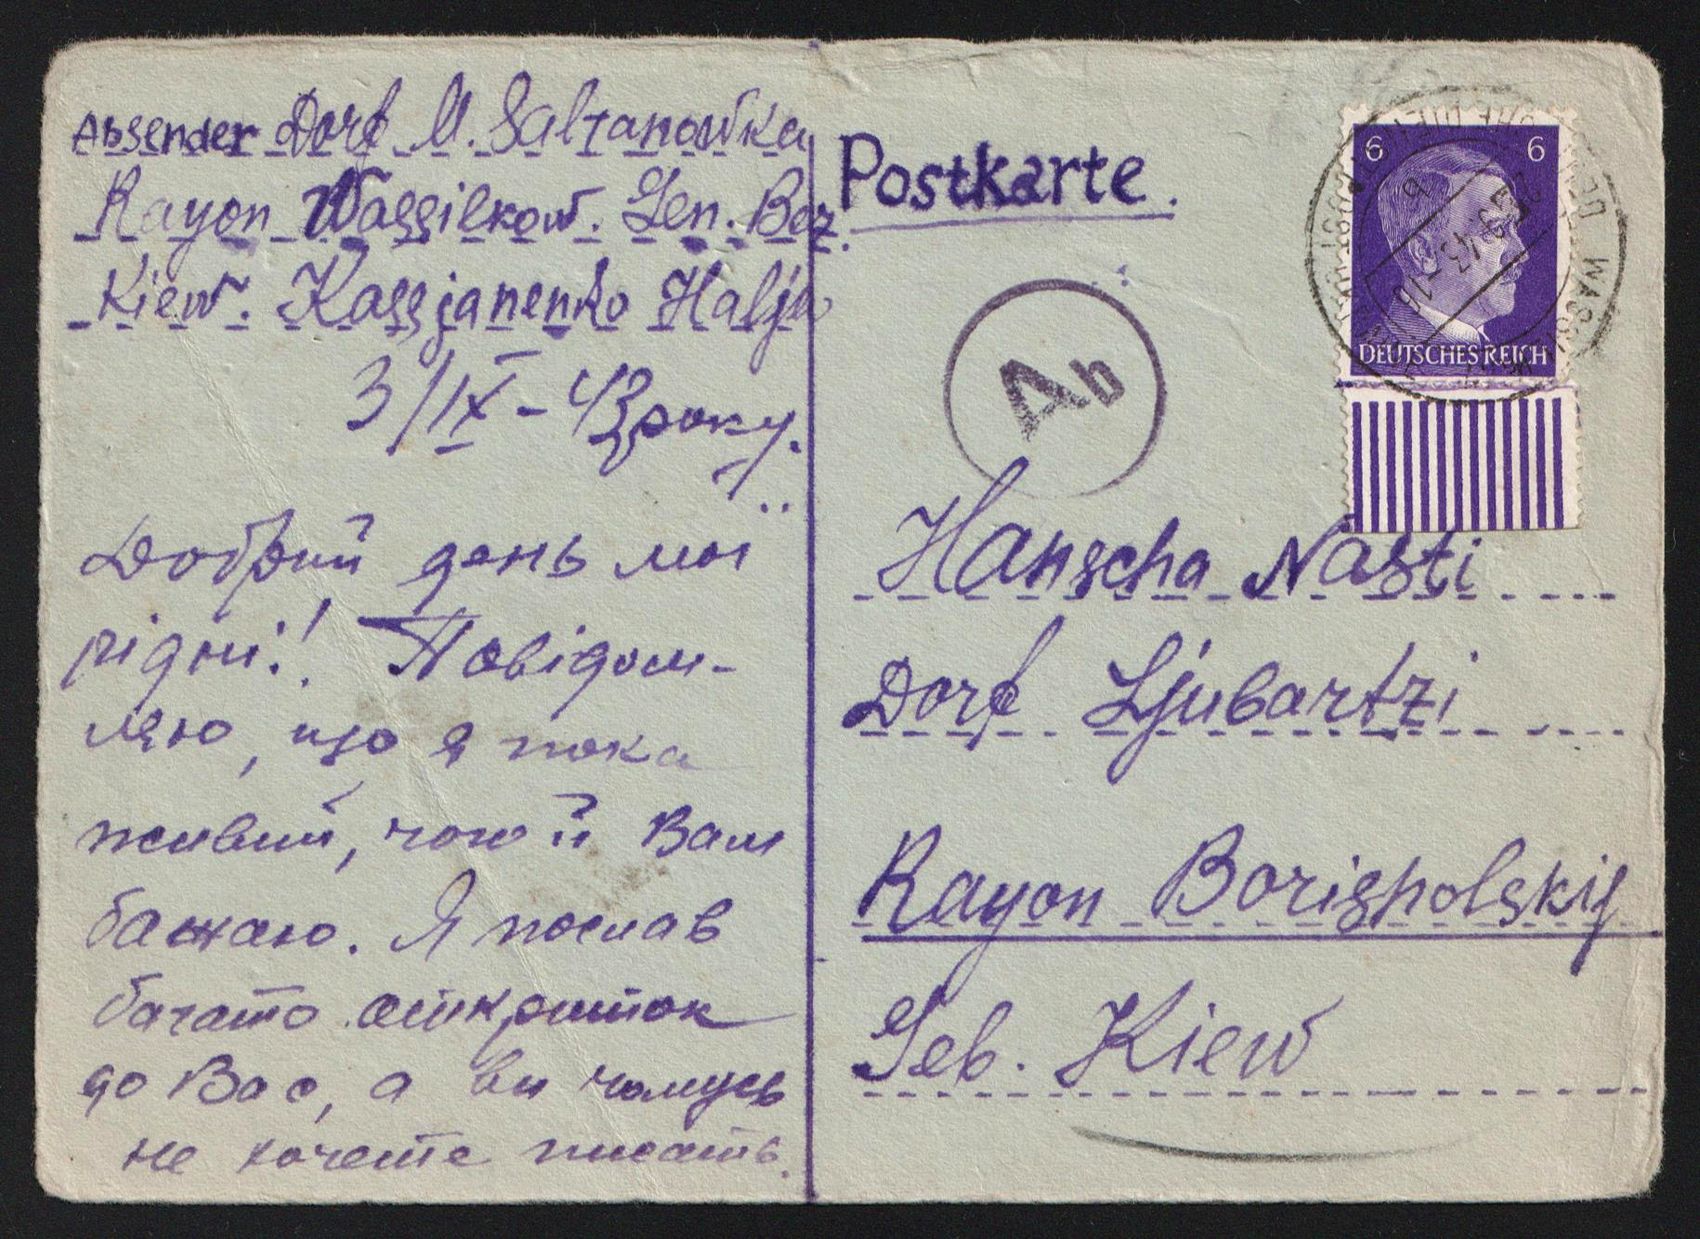 Absender Dorf M. Saltanowka
Rayon Wassilkow. Gen. Bez.
Kiew. Kassjanenko Halja
3/IX - 43 року.
Добрий день мої
рідні! Повідом-
ляю, що я пока
живий, чого й Вам
бажаю. Я послав
багато откриток
до Вас, а ви чомусь
не хочете писать.
Postkarte.
Ab
6 6
DEUTSCHES REICH
Hanscha Nasti
Dorf Ljubartzi
Rayon Borispolskij
Geb. Kiew